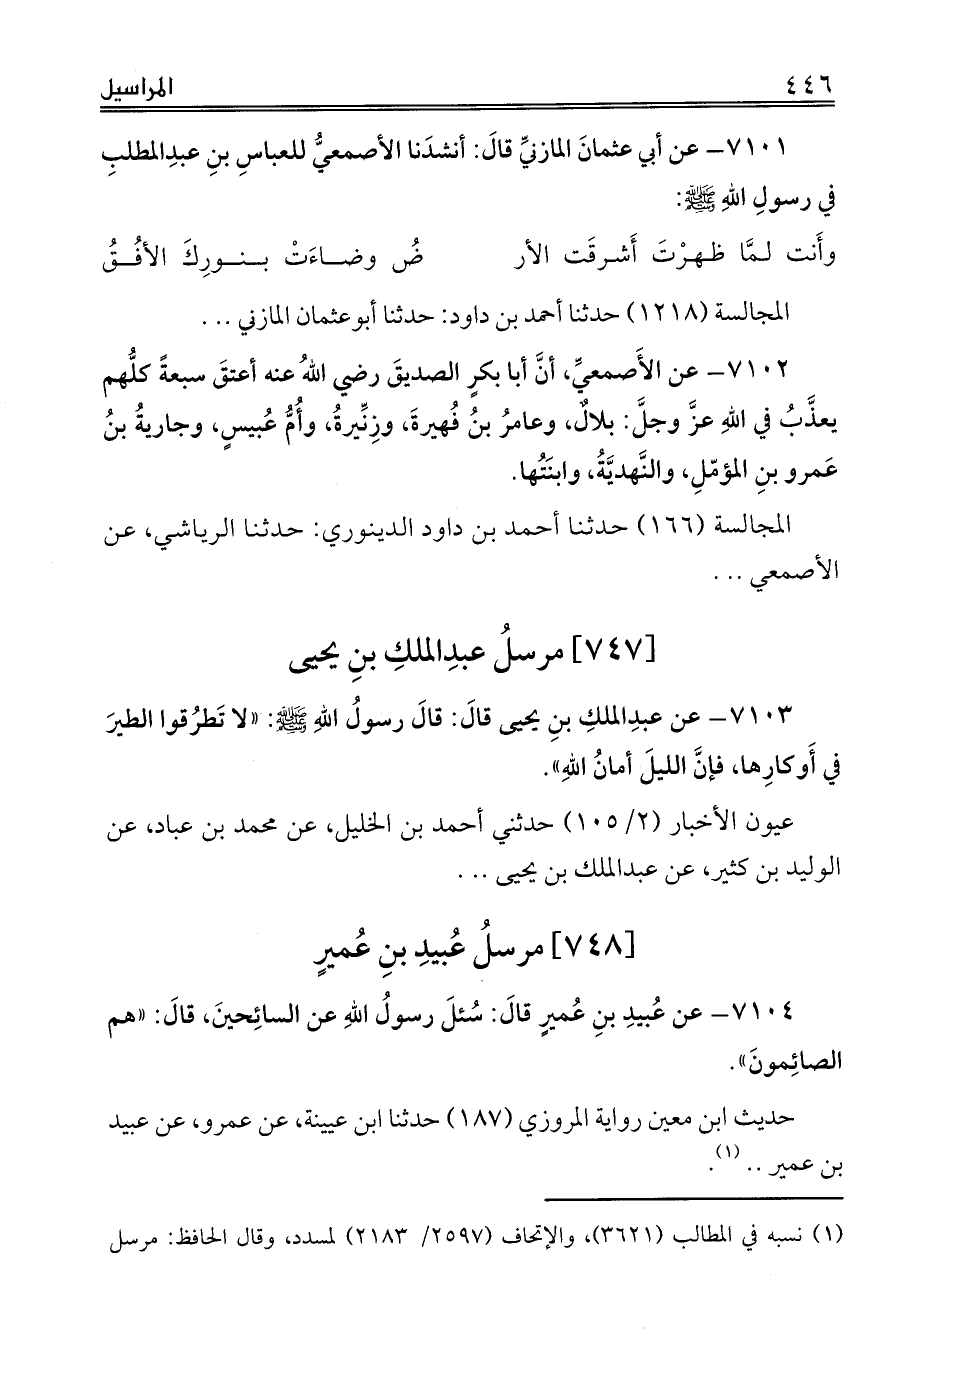 ٤٤٦
المراسيل
٧١٠١– عن أبي عثمانَ المازنيِّ قالَ: أنشدَنا الأصمعيُّ للعباسِ بنِ عبدِالمطلبِ
في رسولِ اللهِ ﷺ:
وأَنت لـمَّا ظـهرْتَ أَشـرقَت الأر ضُ وضـاءَتْ بـنـورِكَ الأفُـقُ
المجالسة (١٢١٨) حدثنا أحمد بن داود: حدثنا أبوعثمان المازني ...
٧١٠٢– عن الأَصمعيِّ، أنَّ أبا بكرٍ الصديقَ رضي اللهُ عنه أعتقَ سبعةً كلُّهم
يعذَّبُ في اللهِ عزَّ وجلَّ: بلالٌ، وعامرُ بنُ فُهيرةَ، وزِنِّيرةُ، وأُمُّ عُبيسٍ، وجاريةُ بنُ
عَمرو بنِ المؤمّلِ، والنَّهديَّةُ، وابنَتُها.
المجالسة (١٦٦) حدثنا أحمد بن داود الدينوري: حدثنا الرياشي، عن
الأصمعي ...
[٧٤٧] مرسلُ عبدِالملكِ بنِ يحيى
٧١٠٣– عن عبدِالملكِ بنِ يحيى قالَ: قالَ رسولُ اللهِ ﷺ: «لا تَطرُقوا الطيرَ
في أَوكارِها، فإنَّ الليلَ أمانُ اللهِ».
عيون الأخبار (٢/ ١٠٥) حدثني أحمد بن الخليل، عن محمد بن عباد، عن
الوليد بن كثير، عن عبدالملك بن يحيى ...
[٧٤٨] مرسلُ عُبيدِ بنِ عُميرٍ
٧١٠٤– عن عُبيدِ بنِ عُميرٍ قالَ: سُئلَ رسولُ اللهِ عن السائِحينَ، قالَ: «هم
الصائِمونَ».
حديث ابن معين رواية المروزي (١٨٧) حدثنا ابن عيينة، عن عمرو، عن عبيد
بن عمير .. (١).
(١) نسبه في المطالب (٣٦٢١)، والإتحاف (٢٥٩٧/ ٢١٨٣) لمسدد، وقال الحافظ: مرسل